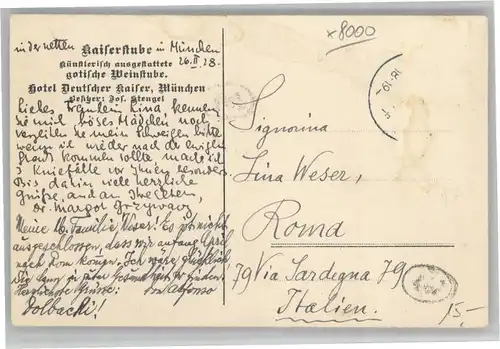 in der netten Kaiserstube in München
Künstlerisch ausgestattete 26.II.28.
gotische Weinstube.
Hotel Deutscher Kaiser, München
Besitzer: Jos. Stengel
Liebes Fräulein Lina kennen
Sie mich böses Mädchen noch
verzeihen Sie mein Schweigen bitte
wenn ich wieder nach der ewigen
Stadt kommen sollte mache ich
3 Kniefälle vor Ihnen besonders
Bis dahin viele herzliche
Grüße, und an Ihre Eltern,
Dr. Margot
Meine lb. Familie Weser! Es ist nicht
ausgeschlossen, dass wir anfang April
nach Rom komen. Ich wäre glücklich
Sie in Gesundheit zu finden.
Herzlichste Grüsse: von Alfonso
Dolbacki!
x8000
Signorina
Lina Weser,
Roma
79 Via Sardegna 79
Italien.
15,-